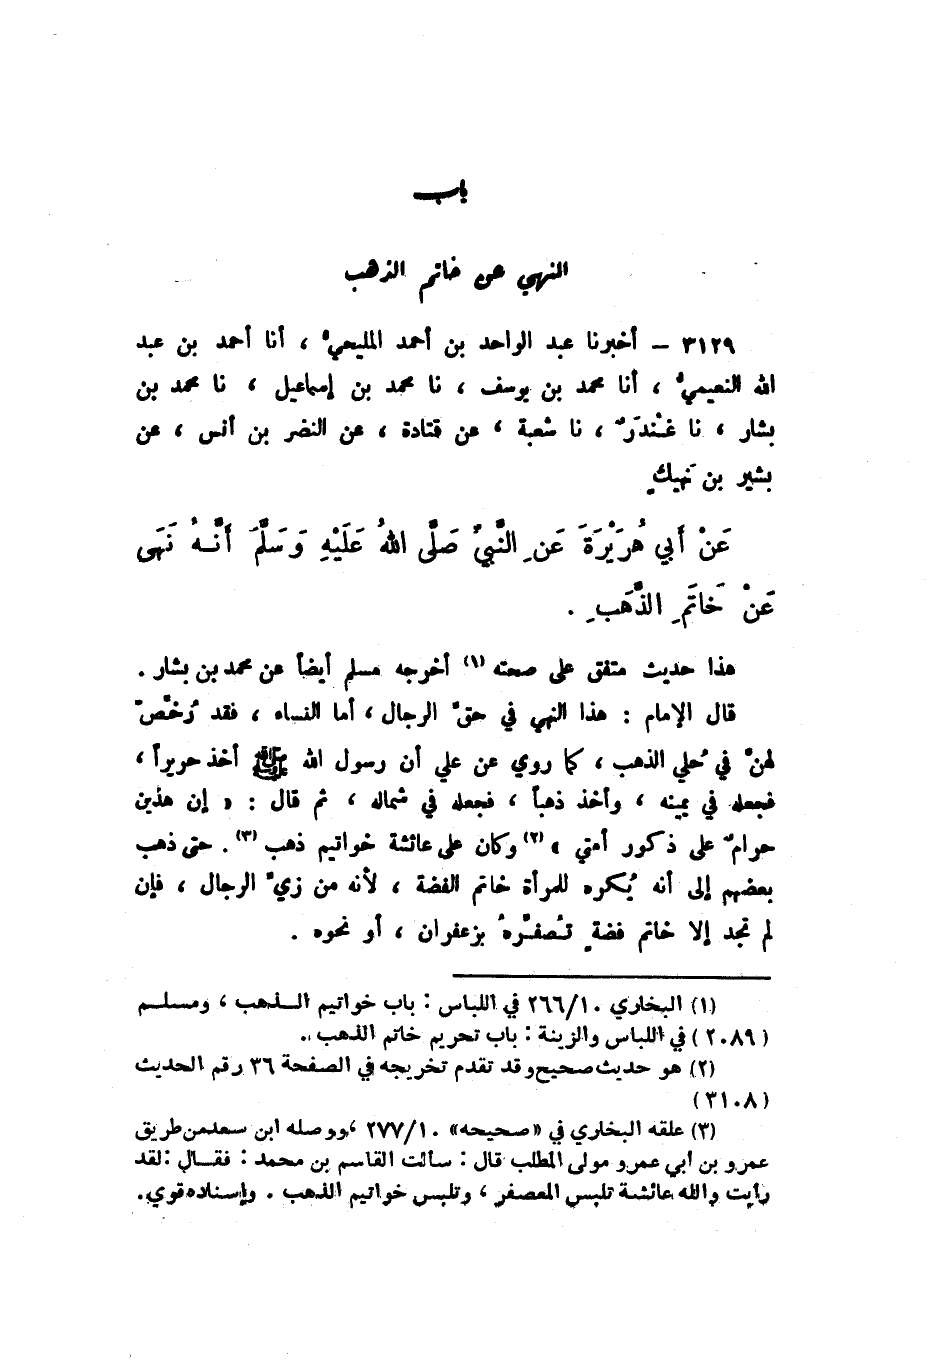 باب
النهي عن خاتم الذهب
٣١٢٩ – أخبرنا عبد الواحد بن أحمد المليحيُّ ، أنا أحمد بن عبد
الله النعيميُّ ، أنا محمد بن يوسف ، نا محمد بن إسماعيل ، نا محمد بن
بشار ، نا غُنْدَرٌ ، نا شعبة ، عن قتادة ، عن النضر بن أنس ، عن
بشير بن نَهِيكٍ
عَنْ أَبي هُرَيْرَةَ عَنِ النَّبيِّ صَلَّى اللهُ عَلَيْهِ وَسَلَّمَ أَنَّهُ نَهَى
عَنْ خَاتَمِ الذَّهَبِ .
هذا حديث متفق على صحته (١) أخرجه مسلم أيضاً عن محمد بن بشار .
قال الإمام : هذا النهي في حقِّ الرجال ، أما النساء ، فقد رُخِّصَ
لهنَّ في حُلي الذهب ، كما روي عن علي أن رسول الله ﷺ أخذ حريراً ،
فجعله في يمينه ، وأخذ ذهباً ، فجعله في شماله ، ثم قال : « إن هذين
حرامٌ على ذكور أمتي » (٢) وكان على عائشة خواتيم ذهب (٣) . حتى ذهب
بعضهم إلى أنه يُكره للمرأة خاتم الفضة ، لأنه من زيِّ الرجال ، فإن
لم تجد إلا خاتم فضةٍ تُصفِّرهُ بزعفران ، أو نحوه .
(١) البخاري ٢٦٦/١٠ في اللباس : باب خواتيم الذهب ، ومسلم
(٢٠٨٩) في اللباس والزينة : باب تحريم خاتم الذهب ..
(٢) هو حديث صحيح وقد تقدم تخريجه في الصفحة ٣٦ رقم الحديث
(٣١٠٨)
(٣) علقه البخاري في «صحيحه» ٢٧٧/١٠ ، ووصله ابن سعد من طريق
عمرو بن أبي عمرو مولى المطلب قال : سألت القاسم بن محمد : فقال : لقد
رأيت والله عائشة تلبس المعصفر ، وتلبس خواتيم الذهب . وإسناده قوي.